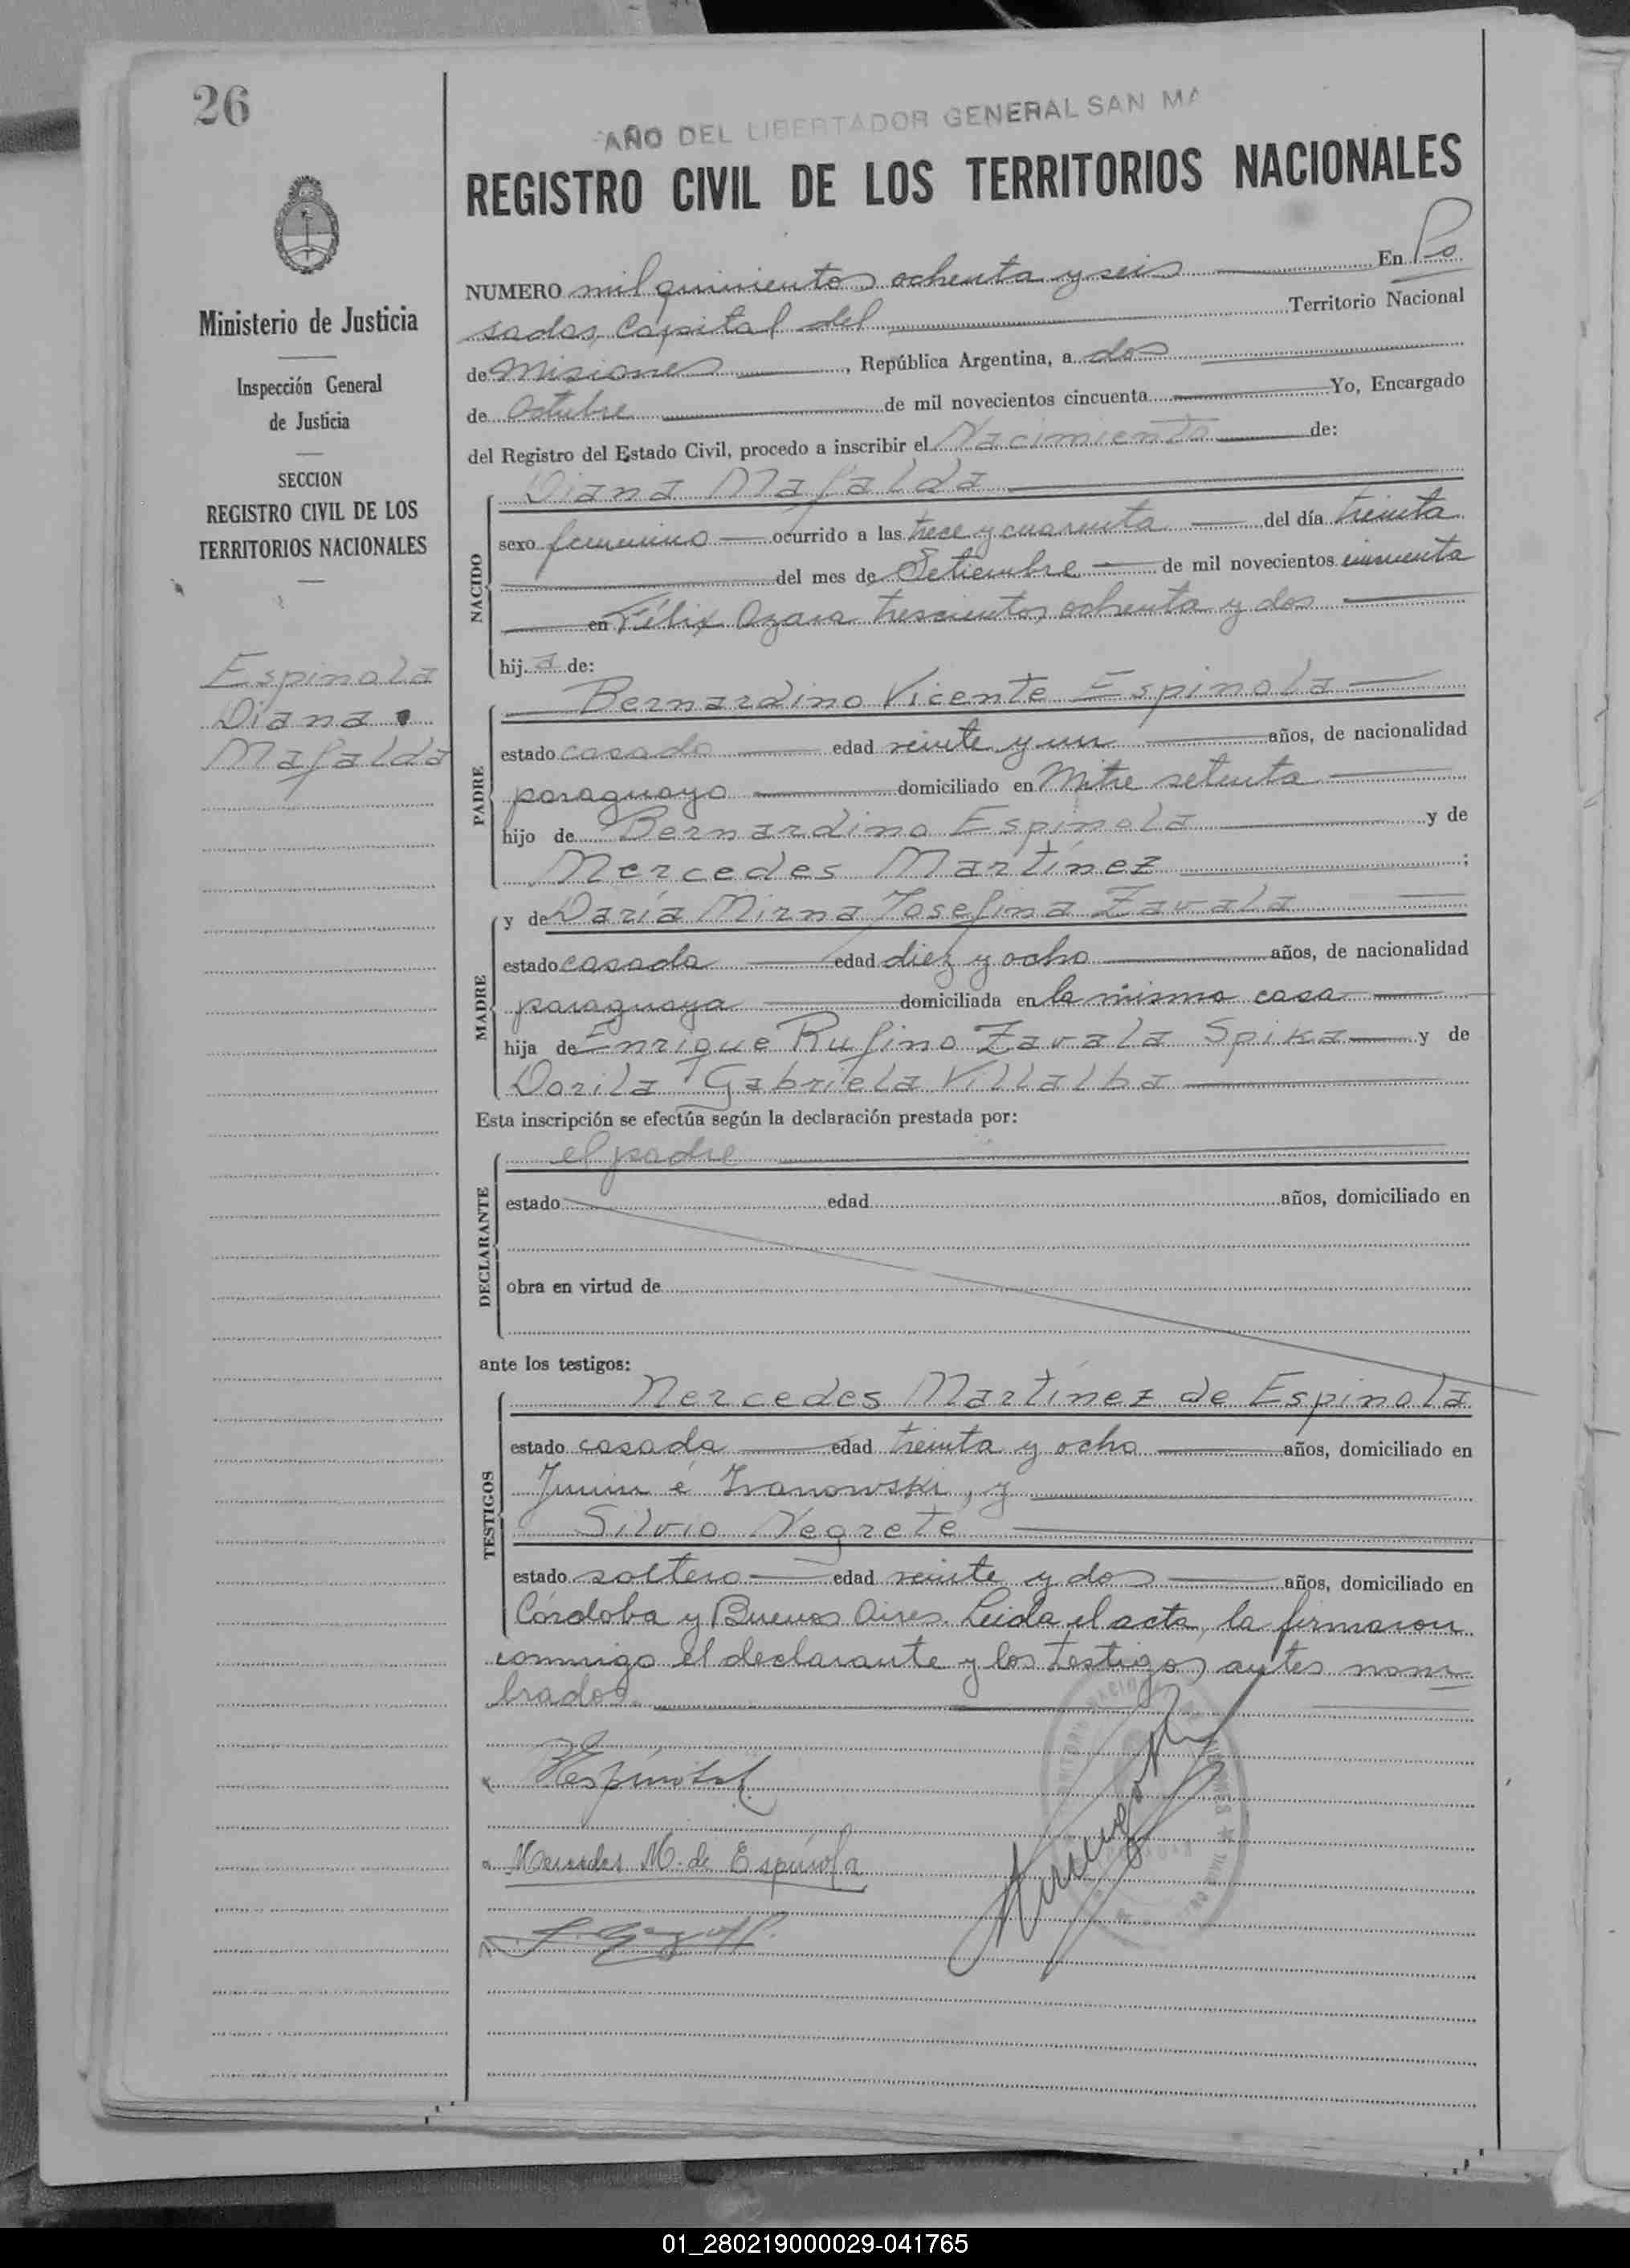 26
AÑO DEL LIBERTADOR GENERAL SAN MA
REGISTRO CIVIL DE LOS TERRITORIOS NACIONALES
Ministerio de Justicia
Inspección General
de Justicia
SECCION
REGISTRO CIVIL DE LOS
TERRITORIOS NACIONALES
Espinola
Diana
Mafalda
NUMERO mil quinientos ochenta y seis En Po
sadas, Capital del Territorio Nacional
de Misiones, República Argentina, a dos
de Octubre de mil novecientos cincuenta Yo, Encargado
del Registro del Estado Civil, procedo a inscribir el Nacimiento de:
NACIDO
Diana Mafalda
sexo femenino ocurrido a las trece y cuarenta del día treinta
del mes de Setiembre de mil novecientos cincuenta
en Félix Azara trescientos ochenta y dos
hija de:
PADRE
Bernardino Vicente Espinola
estado casado edad veinte y un años, de nacionalidad
paraguayo domiciliado en Mitre setenta
hijo de Bernardino Espinola y de
Mercedes Martínez;
MADRE
y de Daría Mirna Josefina Zavala
estado casada edad diez y ocho años, de nacionalidad
paraguaya domiciliada en la misma casa
hija de Enrique Rufino Zavala Spika y de
Dorila Gabriela Villalba
Esta inscripción se efectúa según la declaración prestada por:
DECLARANTE
el padre
estado edad años, domiciliado en
obra en virtud de
ante los testigos:
TESTIGOS
Mercedes Martínez de Espinola
estado casada edad treinta y ocho años, domiciliado en
Junin é Ivanowski, y
Silvio Negrete
estado soltero edad veinte y dos años, domiciliado en
Córdoba y Buenos Aires. Leida el acta, la firmaron
conmigo el declarante y los testigos antes nom
brados.
Espínola
Mercedes M. de Espínola
01_280219000029-041765